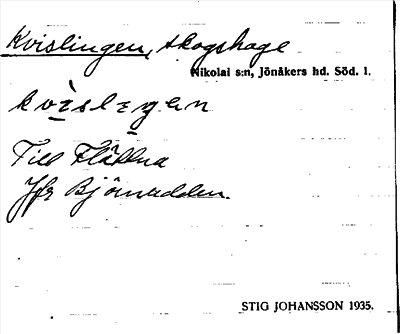 Kvislingen, skogshage
Nikolai s:n, Jönåkers hd. Söd. l.
Till
Jfr Björnudden.
STIG JOHANSSON 1935.